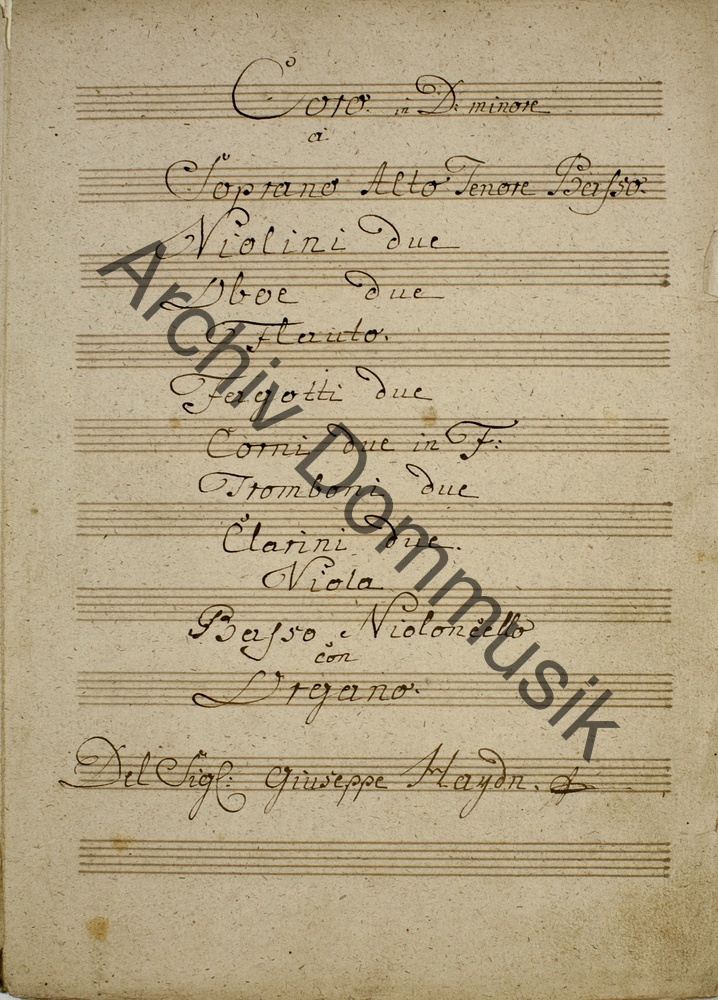 Coro. in D: minore
a
Soprano Alto Tenore Basso.
Violini due
Oboe due
Flauto.
Fagotti due
Corni due in F:
Tromboni due
Clarini due.
Viola
Basso, Violoncello
con
Organo.
Del Sigl: Giuseppe Haydn.
Archiv Dommusik